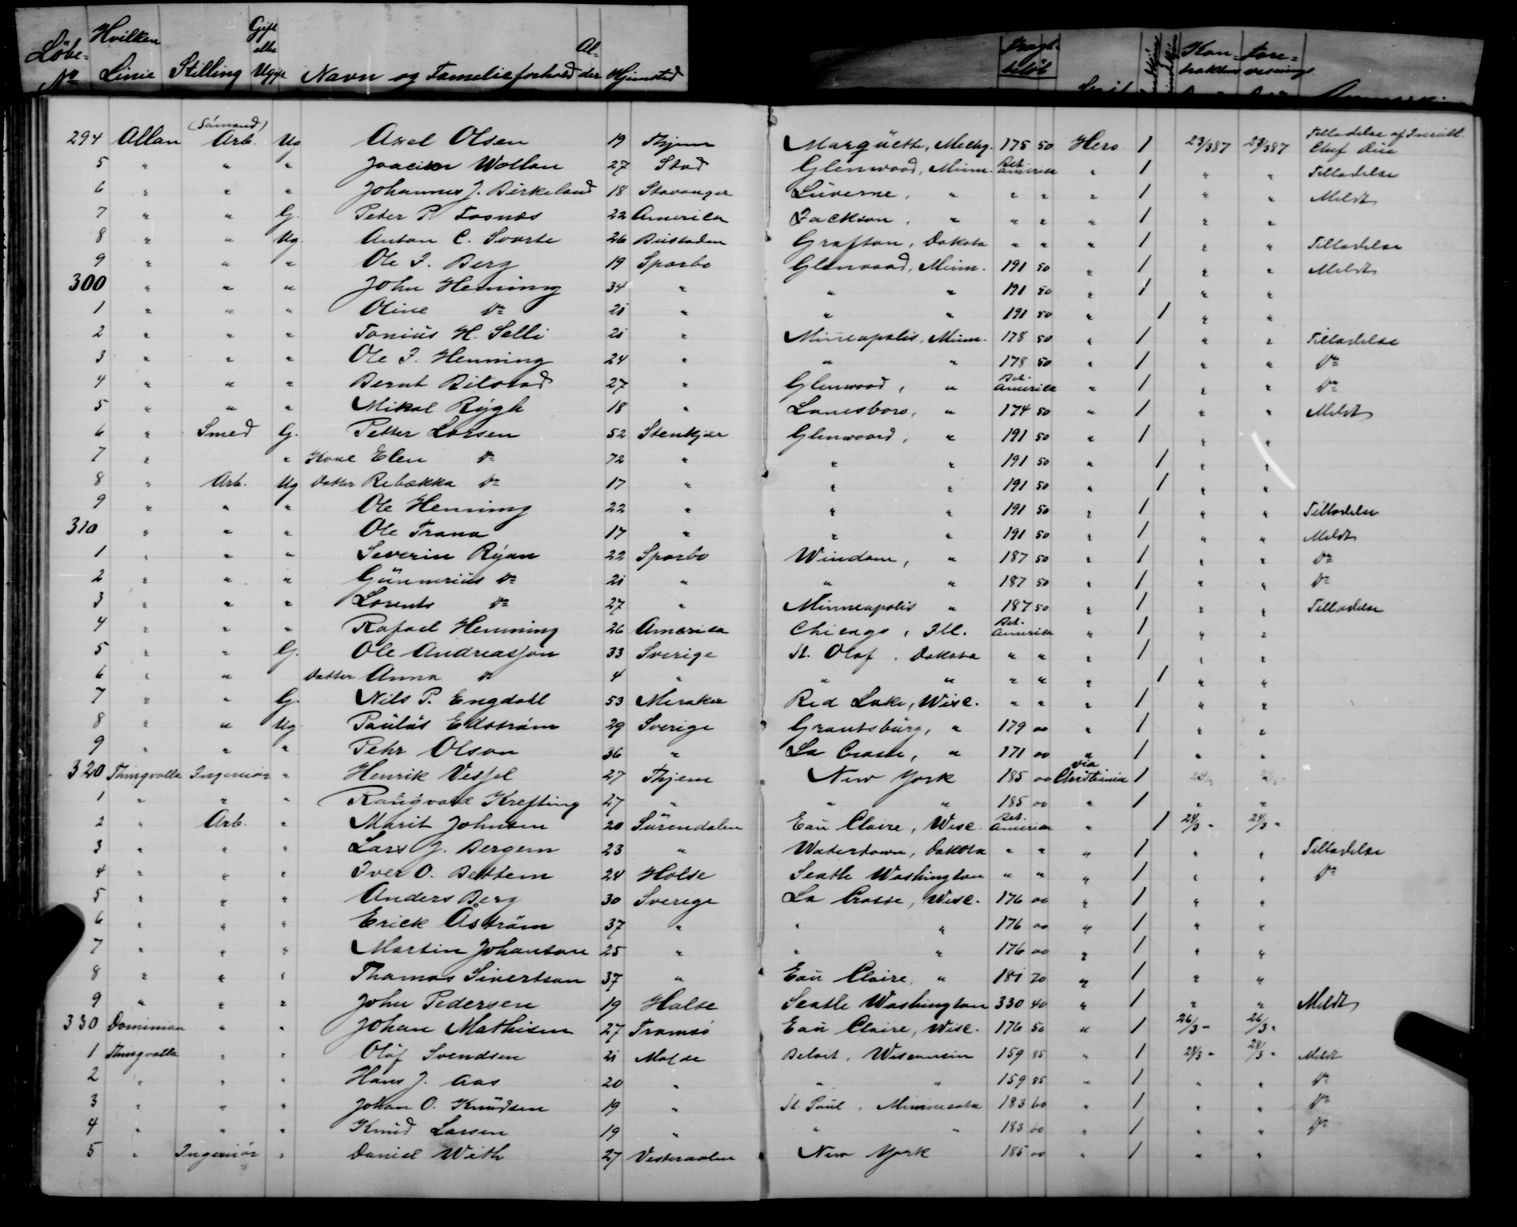 Løbe-No Hvilken Linie Stilling Gift eller Ugift Navn og Familieforhold Alder Hjemsted
294 Allan (Sømand) Arb. Ug Axel Olsen 19 Thjem Marquette, Mechg. 175 50 Hero 1 23/3 87 23/3 87 Tilladelse af Chef
5 " " " Wollan 27 Stod Glenwood, Minn. Bet. America " 1 " " Tilladelse
6 " " " Johannes J. Birkeland 18 Stavanger Luverne, " " " " 1 " " Meldt
7 " " G. Peter P. Fosnæs 22 America Jackson, " " " " 1 " "
8 " " Ug Anton C. Svarte 26 Beistaden Grafton, Dakota " " " 1 " " Tilladelse
9 " " " Ole J. Berg 19 Sparbo Glenwood, Minn. 191 50 " 1 " " Meldt
300 " " " John Henning 34 " " " 191 50 " 1 " "
1 " " " Oline Do 21 " " " 191 50 " 1 " "
2 " " " Tonius H. Selli 21 " Minneapolis, Minn. 178 50 " 1 " " Tilladelse
3 " " " Ole J. Henning 24 " " " 178 50 " 1 " " Do
4 " " " Bernt Bilstad 27 " Glenwood, " Bet. America " 1 " " Do
5 " " " Mikal Rygh 18 " Lanesboro, " 174 50 " 1 " " Meldt
6 " Smed G. Petter Larsen 52 Stenkjær Glenwoord, " 191 50 " 1 " "
7 " " Kone Elen Do 72 " " " 191 50 " 1 " "
8 " Arb. Ug Datter Rebækka Do 17 " " " 191 50 " 1 " "
9 " " " Ole Henning 22 " " " 191 50 " 1 " " Tilladelse
310 " " " Ole Trana 17 " " " 191 50 " 1 " " Meldt
1 " " " Severin Ryan 22 Sparbo Windom, " 187 50 " 1 " " Do
2 " " " Gunnerius Do 21 " " " 187 50 " 1 " " Do
3 " " " Lorents Do 27 " Minneapolis " 187 50 " 1 " " Tilladelse
4 " " " Rafael Henning 26 America Chicago, Ill. Bet. America " 1 " "
5 " " G. Ole Andreasson 33 Sverige St. Olaf, Dakota " " " 1 " "
6 " " Datter Anna Do 4 " " " " " " 1 " "
7 " " G. Nils P. Engdahl 53 Meraker Red Lake, Wisc. " " " 1 " "
8 " " Ug Paulus Edström 29 Sverige Grantsburg, " 179 00 " 1 " "
9 " " " Pehr Olson 36 " La Crosse, " 171 00 " 1 " "
320 Thingvalla Ingeniør " Henrik Vessel 27 Thjem New York 185 00 via Christiania 1
1 " " " Rangvald Krefting 27 " " " 185 00 " 1 " "
2 " Arb. " Marit Johnsen 20 Surendalen Eau Claire, Wisc. Bet. America " 1 24/3 " 24/3 "
3 " " " Lars J. Bergem 23 " Watertown, Dakota " " " 1 " " Tilladelse
4 " " " Iver O. Bettem 24 Halse Seatle Washington " " " 1 " " Do
5 " " " Anders Berg 30 Sverige La Crosse, Wisc. 176 00 " 1 " "
6 " " " Erick Åström 37 " " " 176 00 " 1 " "
7 " " " Martin Johanson 25 " " " 176 00 " 1 " "
8 " " " Thomas Sivertsen 37 " Eau Claire, " 181 20 " 1 " "
9 " " " John Pedersen 19 Halse Seatle Washington 330 40 " 1 " " Meldt
330 Dominion " " Johan Mathisen 27 Tromsø Eau Claire, Wisc. 176 50 " 1 26/3 " 26/3 "
1 Thingvalla " " Oluf Svendsen 21 Molde Beloit, Wisconsin 159 85 " 1 28/3 " 28/3 " Meldt
2 " " " Hans J. Aas 20 " " " 159 85 " 1 " " Do
3 " " " Johan O. Knudsen 19 " St. Paul, Minnesota 183 60 " 1 " " Do
4 " " " Knud Larsen 19 " " " 183 60 " 1 " " Do
5 " Ingeniør " Daniel With 27 Vesteraalen New York 185 00 " 1 " "